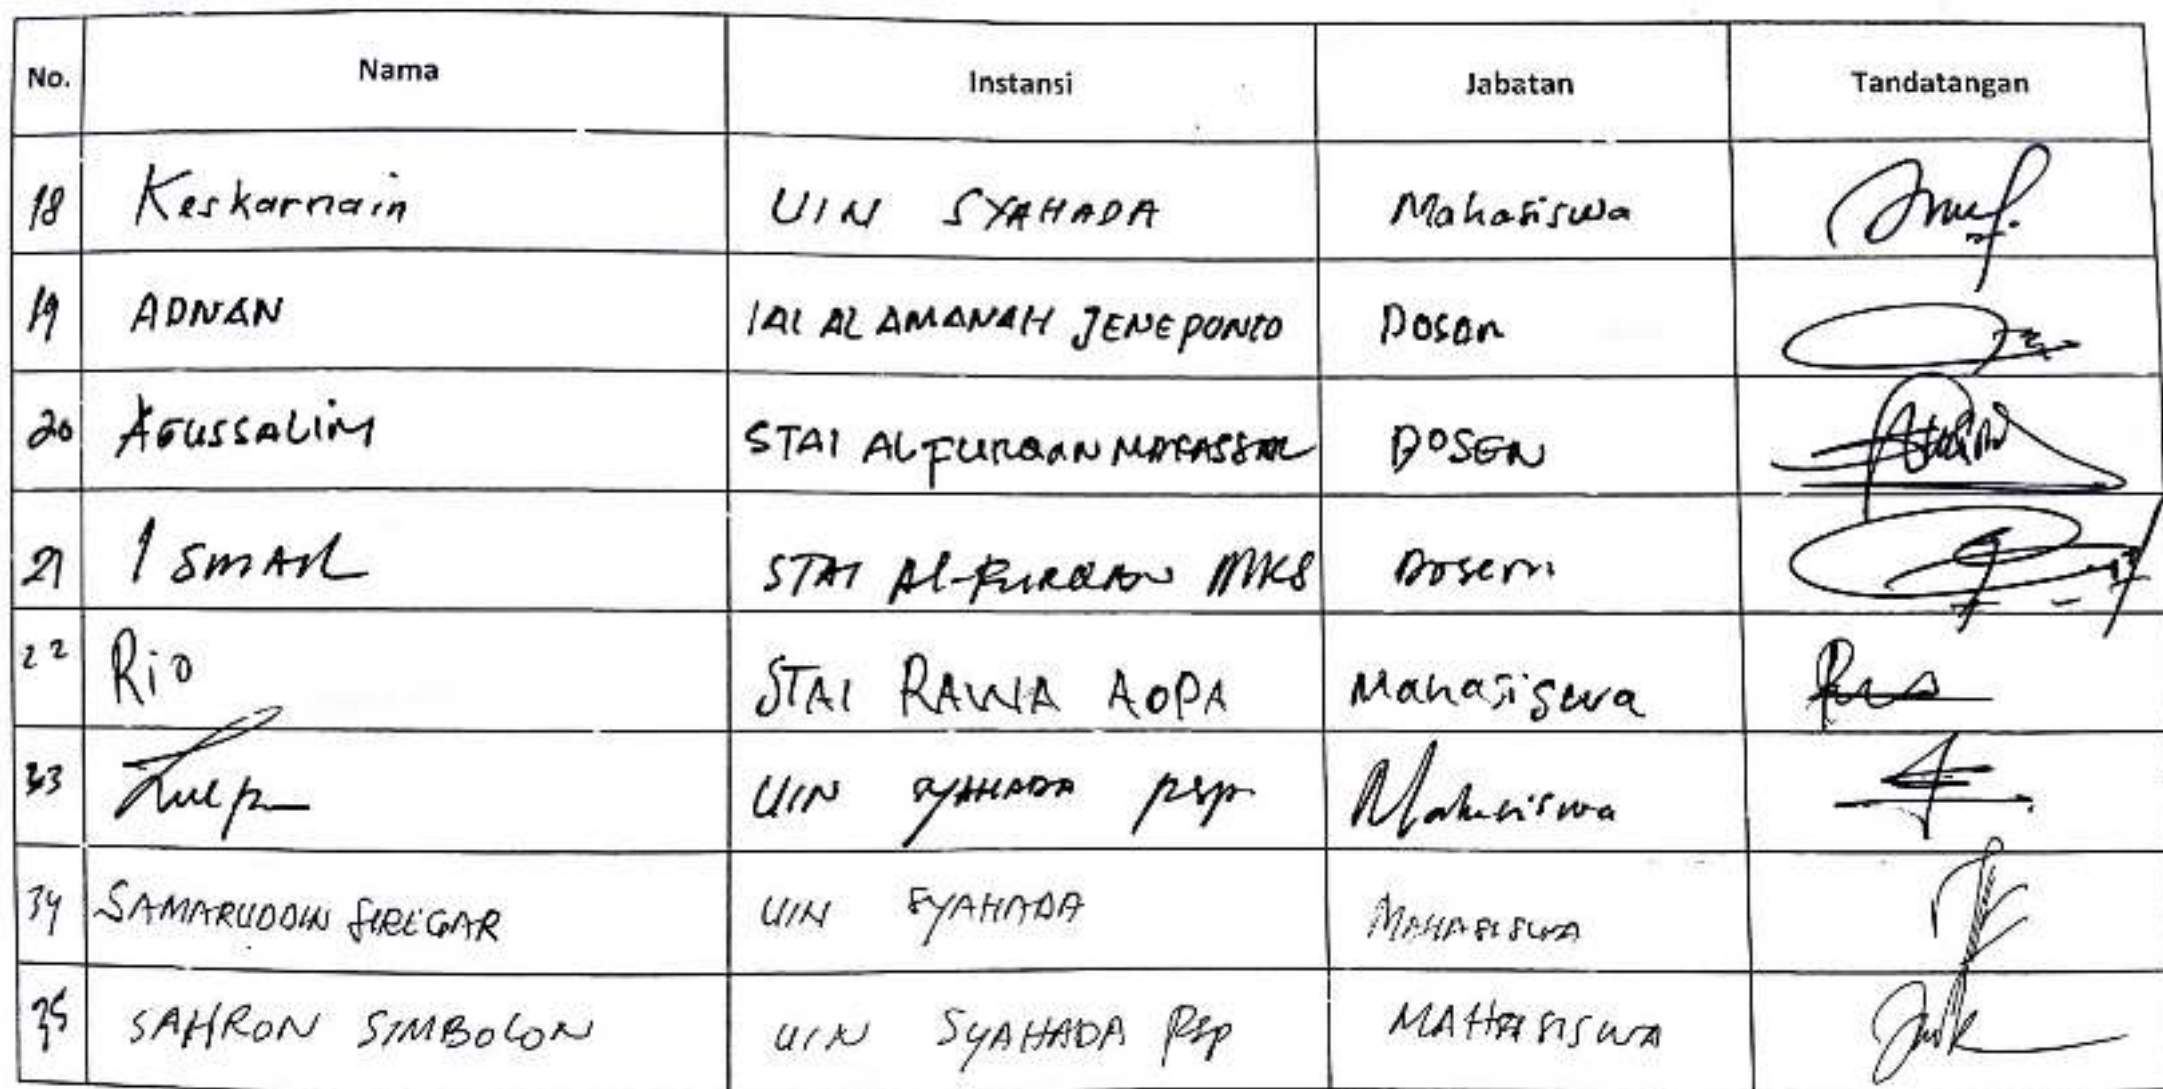 No. Nama Instansi Jabatan Tandatangan
18 Keskarnain UIN SYAHADA Mahasiswa
19 ADNAN IAI AL AMANAH JENEPONTO Dosen
20 AGUSSALIM STAI AL FURQAN MAKASSAR DOSEN
21 ISMAIL STAI Al-FURQAN MKS Dosen
22 Rio STAI RAWA AOPA Mahasiswa
UIN SYAHADA psp Mahasiswa
34 SAMARUDDIN SIREGAR UIN SYAHADA MAHASISWA
35 SAHRON SIMBOLON UIN SYAHADA Psp MAHASISWA